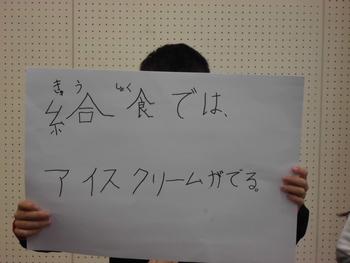 きょう しゅく
給食では、
アイスクリームがでる。